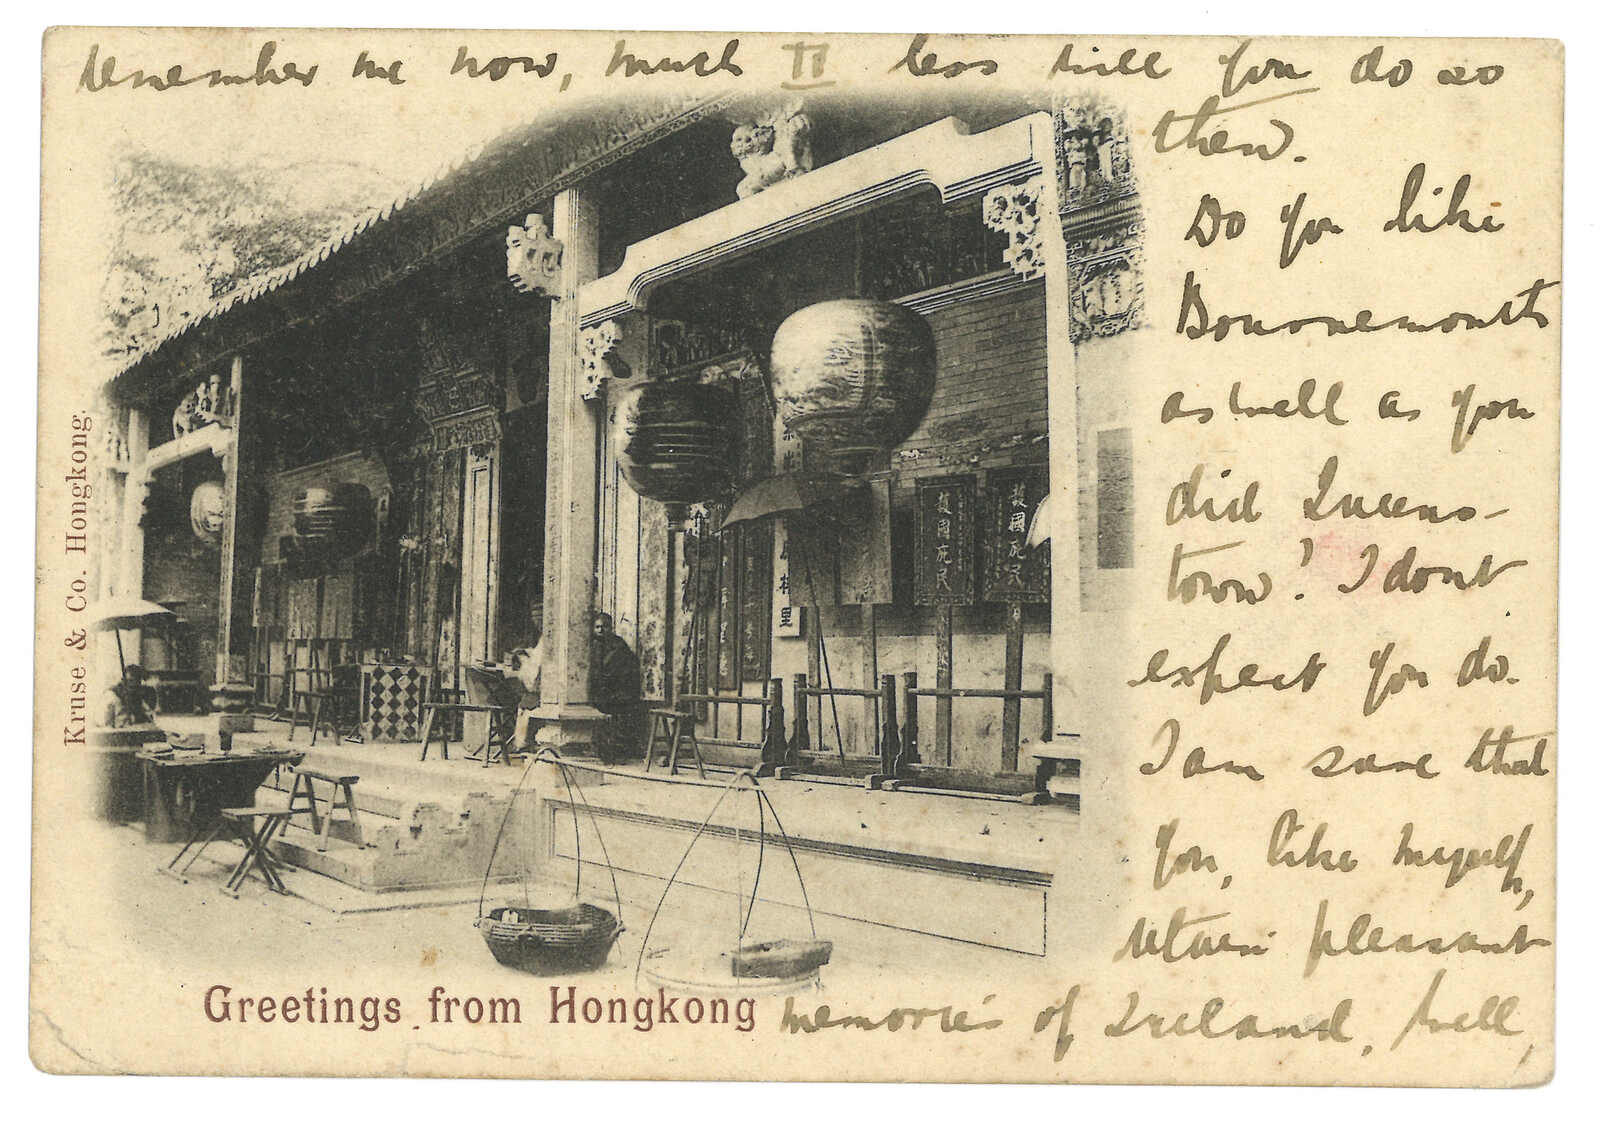 remember me now, much II less will you do so
then.
Do you like
Bournemouth
as well as you
did Queens-
town? I dont
expect you do.
I am sure that
you, like myself,
retain pleasant
memories of Ireland. Well,
Greetings from Hongkong
Kruse & Co. Hongkong.
護國庇民
護國庇民